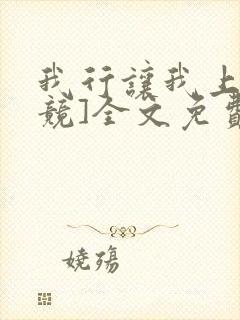 我行讓我上
競]全文免費
嬈殤